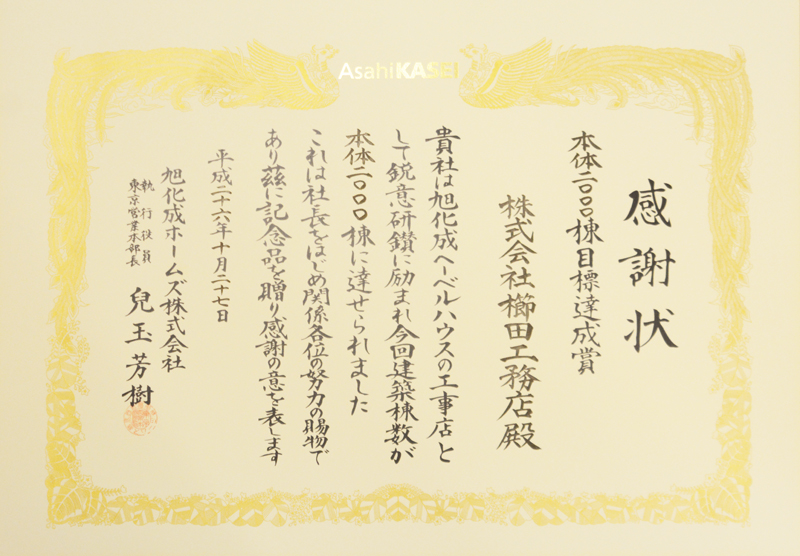 AsahiKASEI
感謝状
本体二〇〇〇棟目標達成賞
株式会社櫛田工務店殿
貴社は旭化成ヘーベルハウスの工事店と
して鋭意研鑽に励まれ今回建築棟数が
本体二〇〇〇棟に達せられました
これは社長をはじめ関係各位の努力の賜物で
あり茲に記念品を贈り感謝の意を表します
平成二十六年十月二十七日
旭化成ホームズ株式会社
執行役員
東京営業本部長
兒玉芳樹